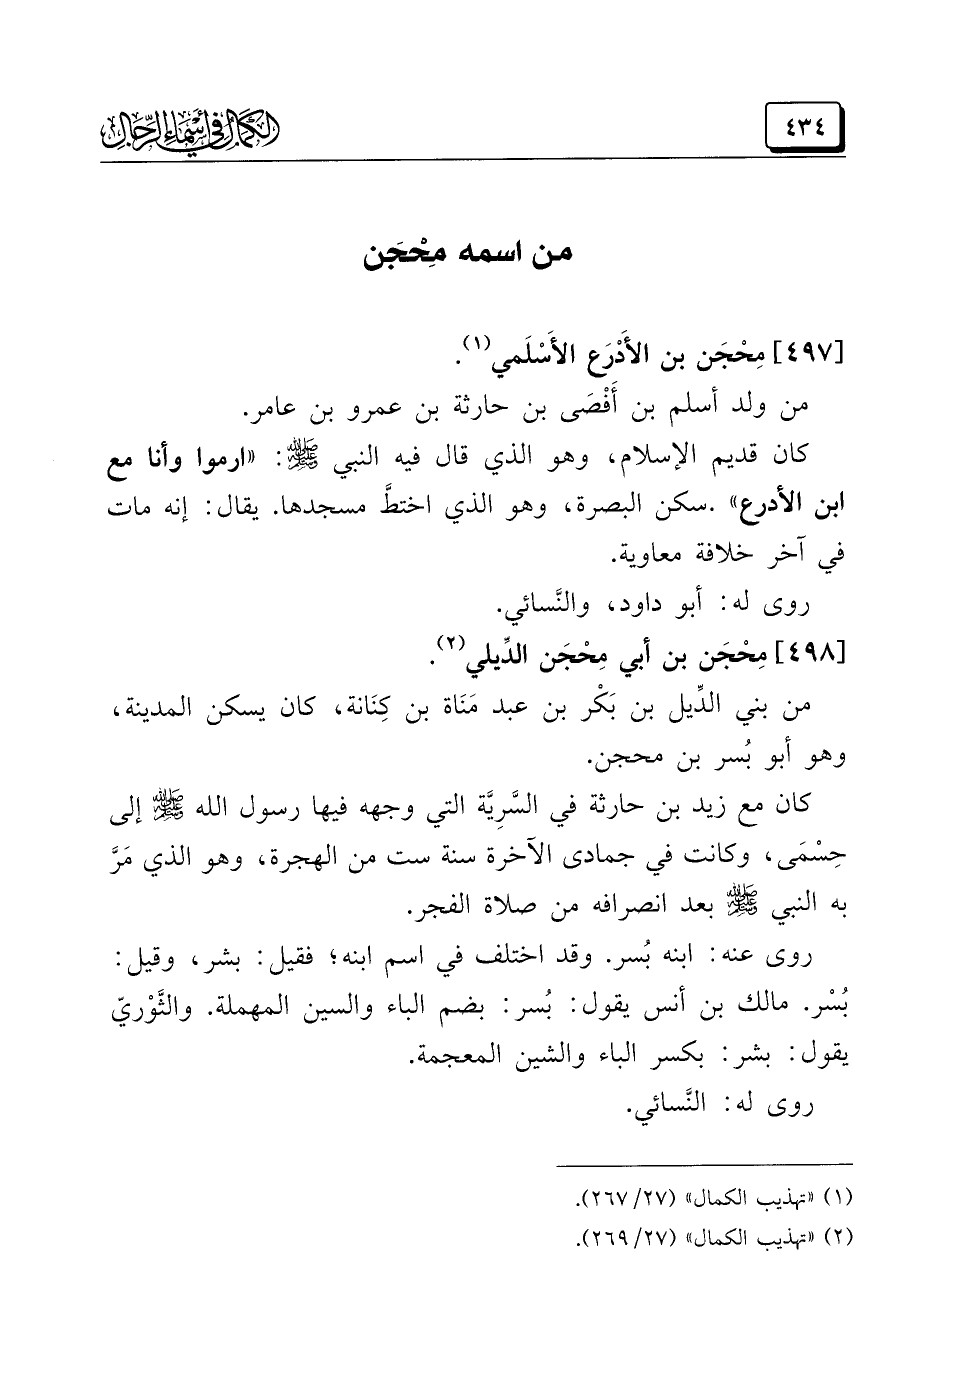 ٤٣٤
الكمال في أسماء الرجال
من اسمه مِحْجَن
[٤٩٧] مِحْجَن بن الأَدْرَع الأَسْلَمي(١).
من ولد أسلم بن أَفْصَى بن حارثة بن عمرو بن عامر.
كان قديم الإسلام، وهو الذي قال فيه النبي ﷺ: «ارموا وأنا مع
ابن الأدرع» .سكن البصرة، وهو الذي اختطَّ مسجدها. يقال: إنه مات
في آخر خلافة معاوية.
روى له: أبو داود، والنَّسائي.
[٤٩٨] مِحْجَن بن أبي مِحْجَن الدِّيلي(٢).
من بني الدِّيل بن بَكْر بن عبد مَنَاة بن كِنَانة، كان يسكن المدينة،
وهو أبو بُسر بن محجن.
كان مع زيد بن حارثة في السَّرِيَّة التي وجهه فيها رسول الله ﷺ إلى
حِسْمَى، وكانت في جمادى الآخرة سنة ست من الهجرة، وهو الذي مَرَّ
به النبي ﷺ بعد انصرافه من صلاة الفجر.
روى عنه: ابنه بُسر. وقد اختلف في اسم ابنه؛ فقيل: بشر، وقيل:
بُسْر. مالك بن أنس يقول: بُسر: بضم الباء والسين المهملة. والثَّوْريّ
يقول: بشر: بكسر الباء والشين المعجمة.
روى له: النَّسائي.
(١) «تهذيب الكمال» (٢٧/ ٢٦٧).
(٢) «تهذيب الكمال» (٢٧/ ٢٦٩).